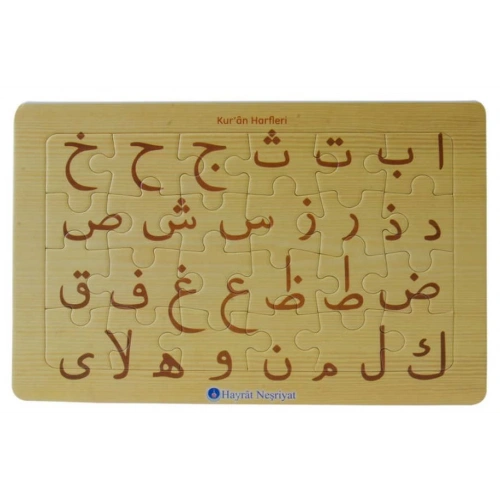 Kur'ân Harfleri
ا ب ت ث ج ح خ
د ذ ر ز س ش ص
ض ط ظ ع غ ف ق
ك ل م ن و ه لا ى
Hayrât Neşriyat